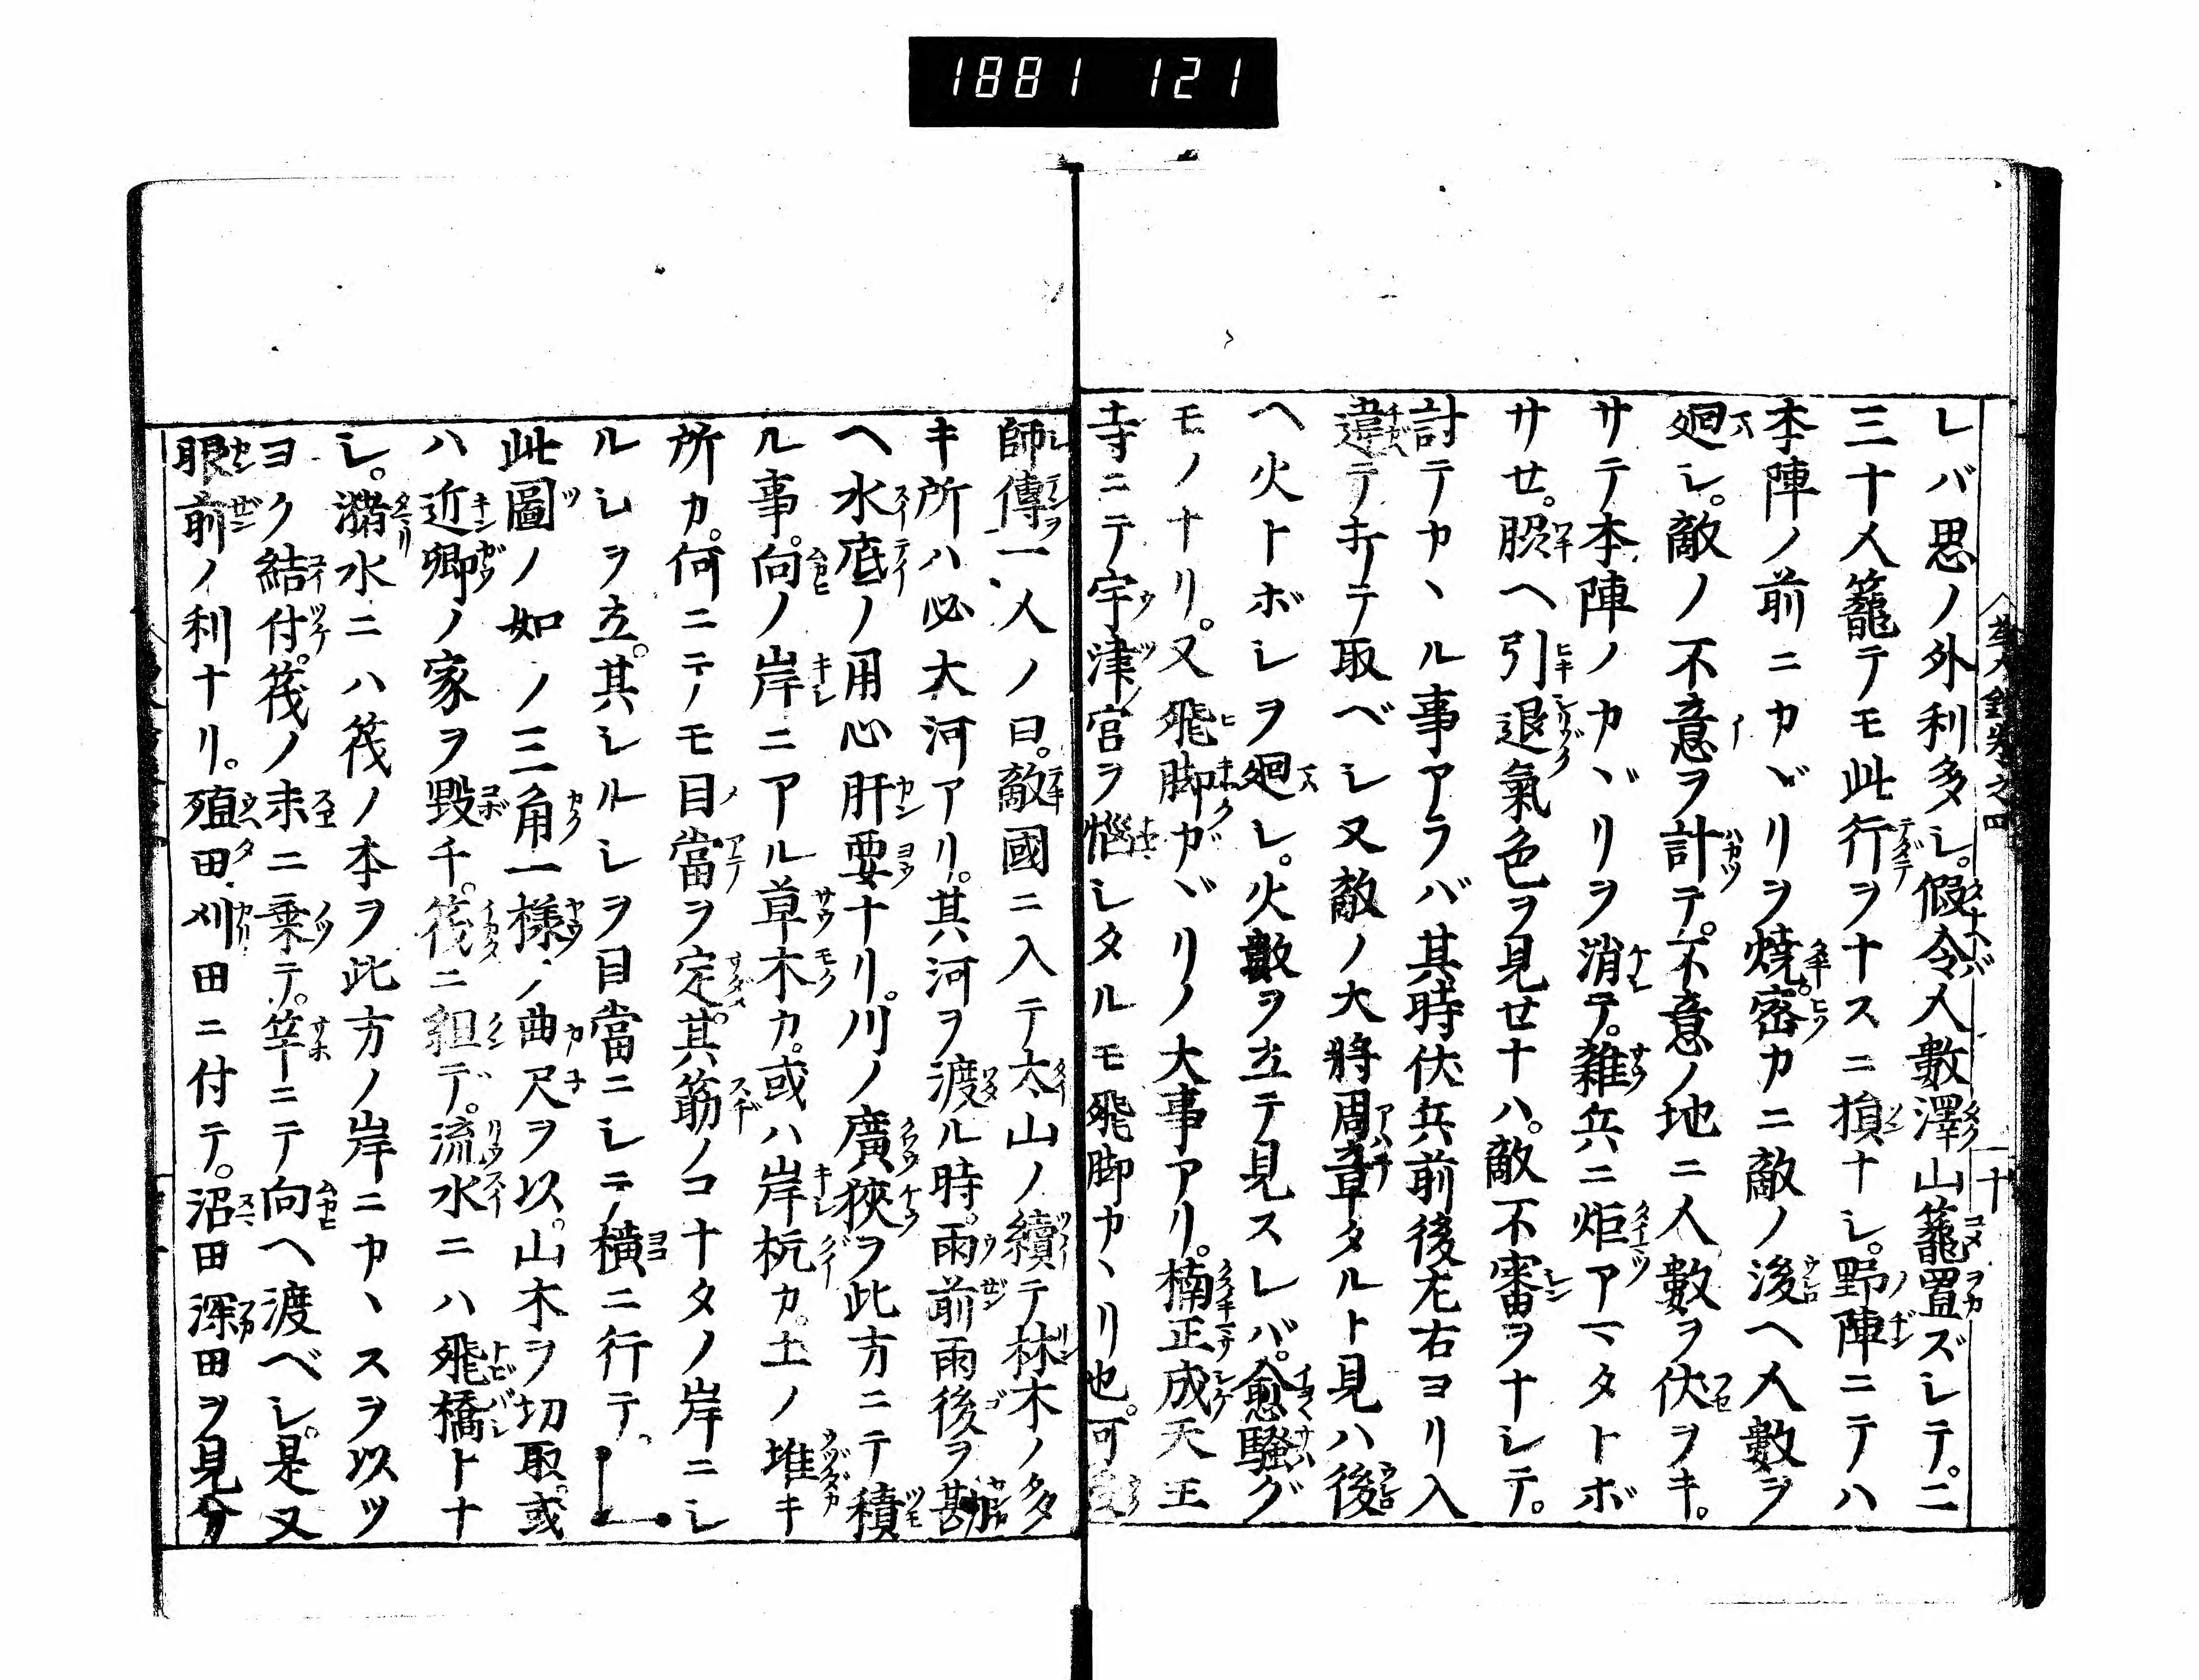 1881 121
レバ思ノ外利多シ。假令人數澤山籠置ズシテ。二
三十人籠テモ此行ヲナスニ損ナシ。野陣ニテハ
本陣ノ前ニカヾリヲ焼。密カニ敵ノ後ヘ人數ヲ
廻シ。敵ノ不意ヲ計テ。不意ノ地ニ人數ヲ伏ヲキ。
サテ本陣ノカヾリヲ消テ。雑兵ニ炬アマタトボ
サせ。脇ヘ引退氣色ヲ見せナハ。敵不審ヲナシテ。
討テカヽル事アラバ其時伏兵前後左右ヨリ入
違テ討テ取ベシ又敵ノ大將周章タルト見ハ後
ヘ火トボシヲ廻シ。火數ヲ立テ見スレバ。愈騒グ
モノナリ。又飛脚ガヾリノ大事アリ。楠正成天王
寺ニテ宇津宮ヲ惱シタルモ飛脚カヽリ也。可
師傳一人ノ曰。敵國ニ入テ太山ノ續テ林木ノ多
キ所ハ必大河アリ。其河ヲ渡ル時。雨前雨後ヲ勘
ヘ水底ノ用心肝要ナリ。川ノ廣狹ヲ此方ニテ積
ル事。向ノ岸ニアル草木カ。或ハ岸杭カ。土ノ堆キ
所カ。何ニテノモ目當ヲ定。其筋ノコナタノ岸ニシ
ルシヲ立。其シルシヲ目當ニシテ横ニ行テ。
此圖ノ如ノ三角一様ノ曲尺ヲ以。山木ヲ切取。或
ハ近郷ノ家ヲ毀チ。筏ニ組デ。流水ニハ飛橋トナ
シ。瀦水ニハ筏ノ本ヲ此方ノ岸ニカヽスヲ以ツ
ヨク結付。筏ノ末ニ乗テ。竿ニテ向ヘ渡ベシ。是又
眼前ノ利ナリ。殖田刈田ニ付テ。沼田深田ヲ見分